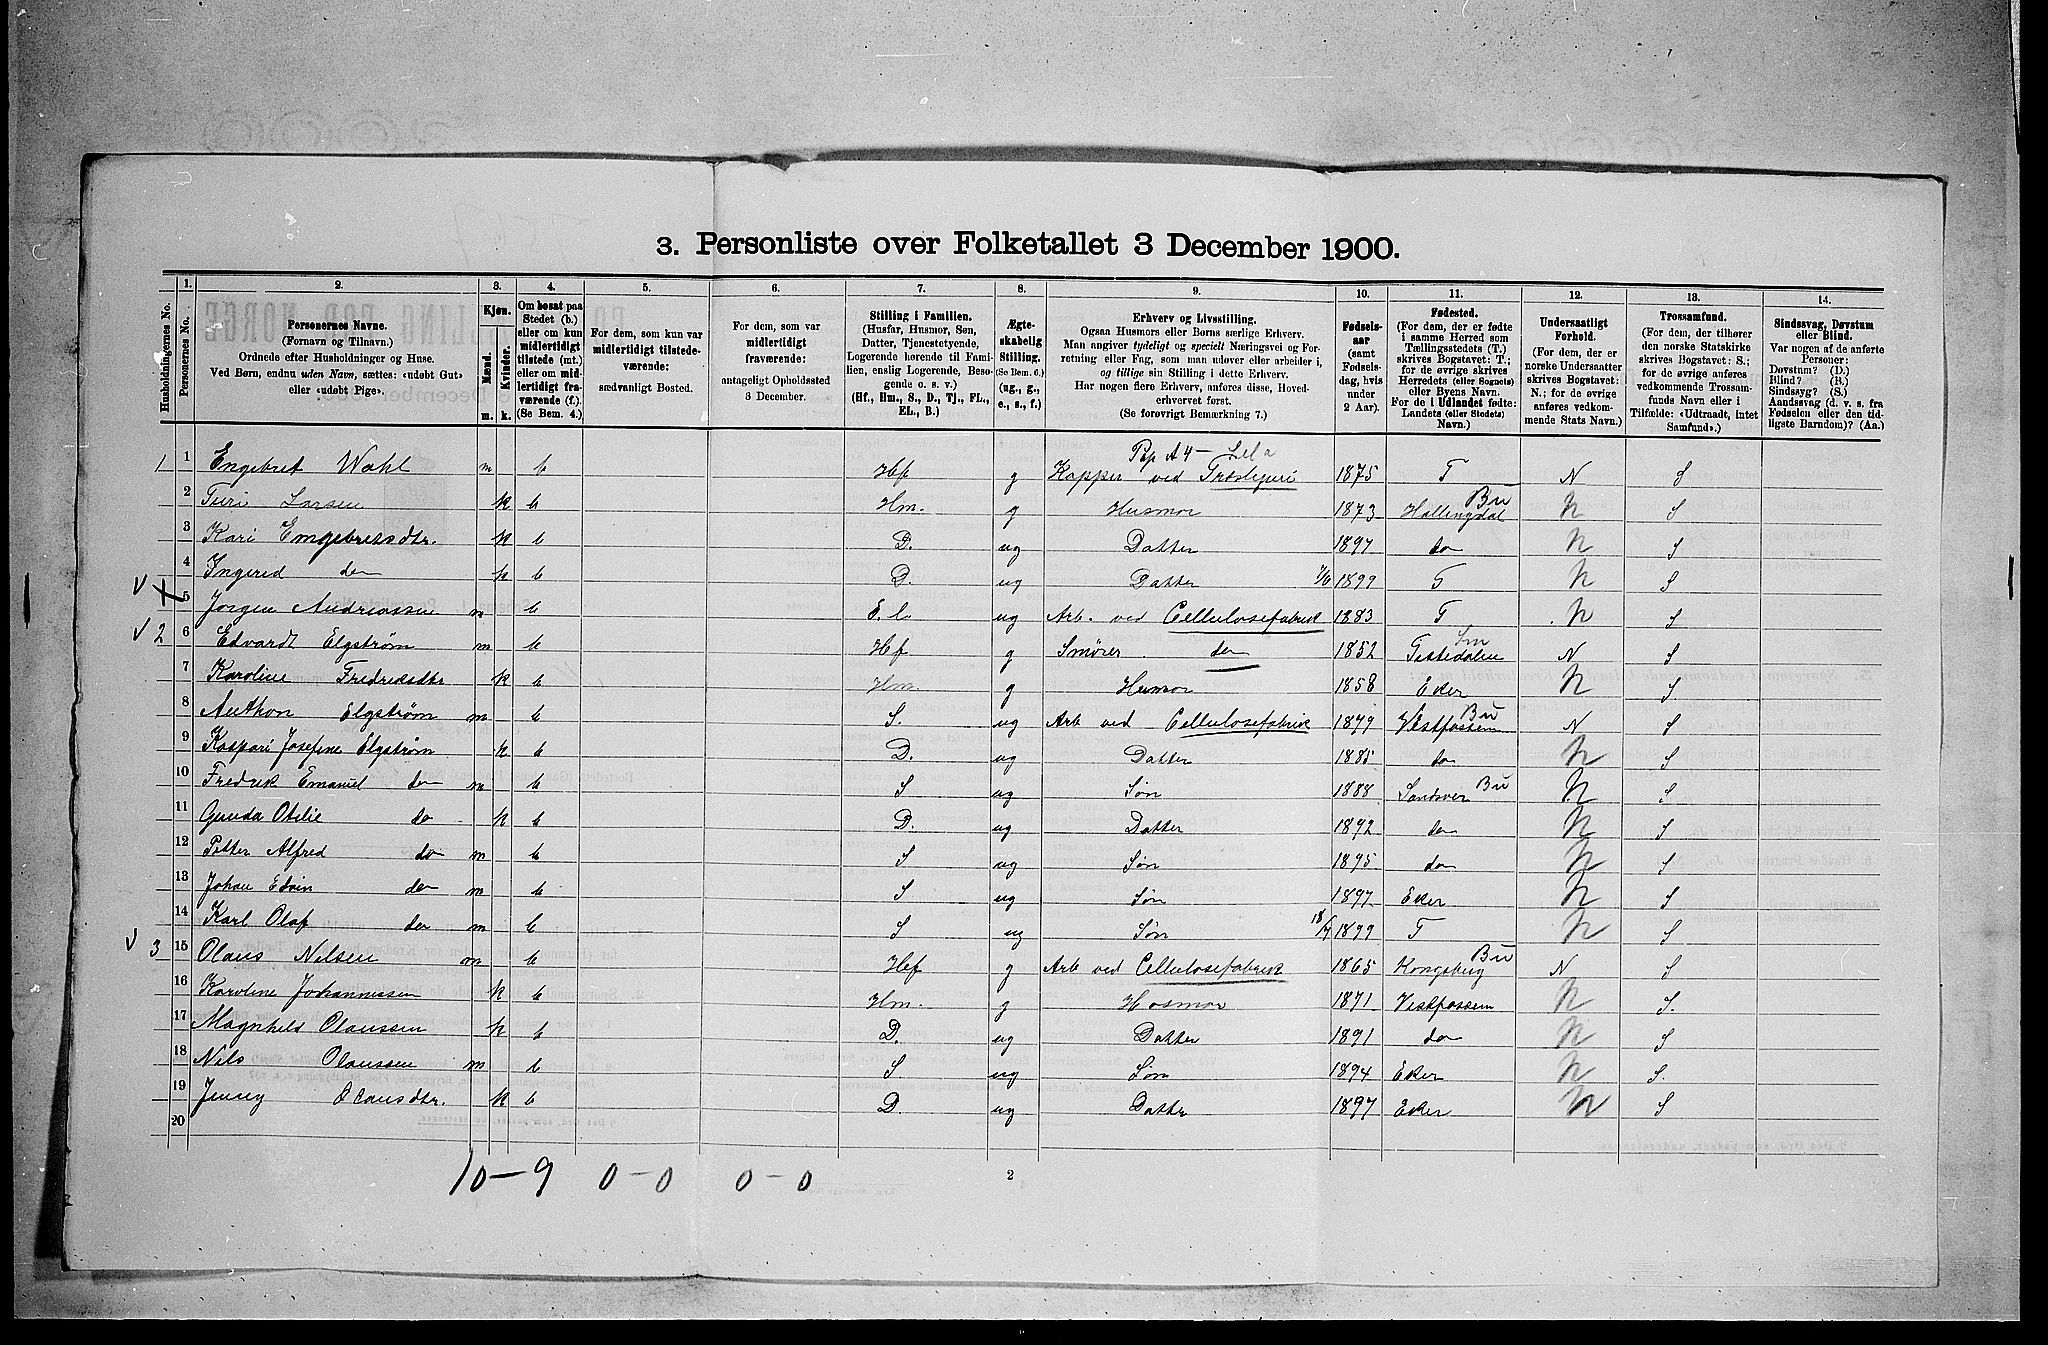 3. Personliste over Folketallet 3 December 1900.
1. 2. 3. 4. 5. 6. 7. 8. 9. 10. 11. 12. 13. 14.
Husholdningernes No.
Personernes No.
Personernes Navne.
(Fornavn og Tilnavn.)
Ordnede efter Husholdninger og Huse.
Ved Børn, endnu uden Navn, sættes: «udøbt Gut»
eller «udøbt Pige».
Kjøn.
Mænd. Kvinder.
m. k.
Om bosat paa
Stedet (b.)
eller om kun
midlertidigt
tilstede (mt.)
eller om mid-
lertidigt fra-
værende (f.).
(Se Bem. 4.)
For dem, som kun var
midlertidigt tilstede-
værende:
sædvanligt Bosted.
For dem, som var
midlertidigt
fraværende:
antageligt Opholdssted
3 December.
Stilling i Familien.
(Husfar, Husmor, Søn,
Datter, Tjenestetyende,
Logerende hørende til Fami-
lien, enslig Logerende, Besø-
gende o. s. v.)
(Hf., Hm., S., D., Tj., FL.,
EL., B.)
Ægte-
skabelig
Stilling.
(Se Bem. 6.)
(ug., g.,
e., s., f.)
Erhverv og Livsstilling.
Ogsaa Husmors eller Børns særlige Erhverv.
Man angiver tydeligt og specielt Næringsvei og For-
retning eller Fag, som man udøver eller arbeider i,
og tillige sin Stilling i dette Erhverv.
Har nogen flere Erhverv, anføres disse, Hoved-
erhvervet først.
(Se forøvrigt Bemærkning 7.)
Fødsels-
aar
(samt
Fødsels-
dag, hvis
under
2 Aar).
Fødested.
(For dem, der er fødte
i samme Herred som
Tællingsstedets (T.)
skrives Bogstavet: T.;
for de øvrige skrives
Herredets (eller Sognets)
eller Byens Navn.
For de i Udlandet fødte:
Landets (eller Stedets)
Navn.)
Undersaatligt
Forhold.
(For dem, der er
norske Undersaatter
skrives Bogstavet:
N.; for de øvrige
anføres vedkom-
mende Stats Navn.)
Trossamfund.
(For dem, der tilhører
den norske Statskirke
skrives Bogstavet: S.;
for de øvrige anføres
vedkommende Trossam-
funds Navn eller i
Tilfælde: «Udtraadt, intet
Samfund».)
Sindssvag, Døvstum
eller Blind.
Var nogen af de anførte
Personer:
Døvstum? (D.)
Blind? (B.)
Sindssyg? (S.)
Aandssvag (d. v. s. fra
Fødselen eller den tid-
ligste Barndom)? (Aa.)
1 1 Engebret Wahl m b Hf g Kapper ved Træsliperi 1875 T N S
2 Turi Larsen k b Hm. g Husmor 1873 Hallingdal Bu N S
3 Kari Emgebretsdtr. k b D. ug Datter 1897 do N S
4 Ingerid do k b D. ug Datter 1899 T N S
5 Jørgen Andreassen m b E.l. ug Arb. ved Cellulosefabrik 1883 T N S
v 2 6 Edvardt Elgstrøm m b Hf g Smører do 1852 Tistedalen Sm N S
7 Karoline Fredriksdtr k b Hm. g Husmor 1858 Eker N S
8 Anthon Elgstrøm m b S. ug Arb ved Cellulosefabrik 1879 Vestfossen Bu N S
9 Kaspari Josefine Elgstrøm k b D. ug Datter 1885 do N S
10 Fredrik Emanuel do m b S ug Søn 1888 Sandsver Bu N S
11 Gunda Otilie do k b D. ug Datter 1892 do N S
12 Petter Alfred do m b S ug Søn 1895 do N S
13 Johan Edvin do m b S ug Søn 1897 Eker N S
14 Karl Olaf do m b S ug Søn 18/7 1899 T N S
v 3 15 Olaus Nilsen m b Hf g Arb ved Cellulosefabrik 1865 Kongsberg Bu N S
16 Karoline Johannessen k b Hm. g Hosmor 1871 Vestfossen N S.
17 Magnhild Olaussen k b D. ug Datter 1891 do N S
18 Nils Olaussen m b S ug Søn 1894 Eker N S.
19 Jenny Olausdtr. k b D. ug Datter 1897 Eker N S
20
10-9 0-0 0-0
2